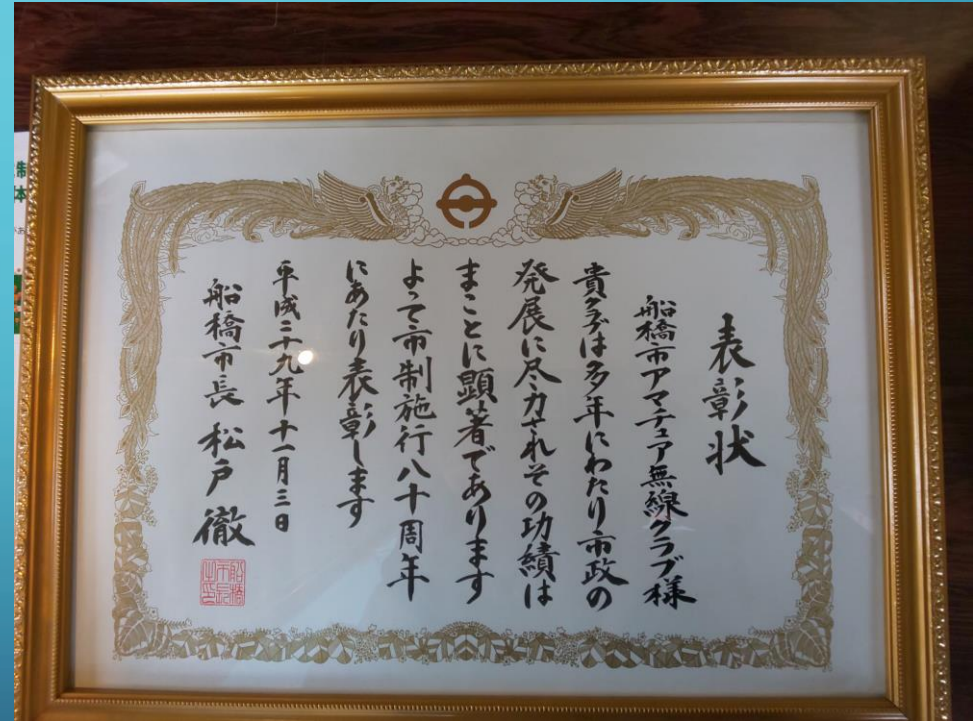 表彰状
船橋市アマチュア無線クラブ様
貴クラブは多年にわたり市政の
発展に尽力されその功績は
まことに顕著であります
よって市制施行八十周年
にあたり表彰します
平成二十九年十一月三日
船橋市長 松戸徹
船橋
市長
之印
制
本